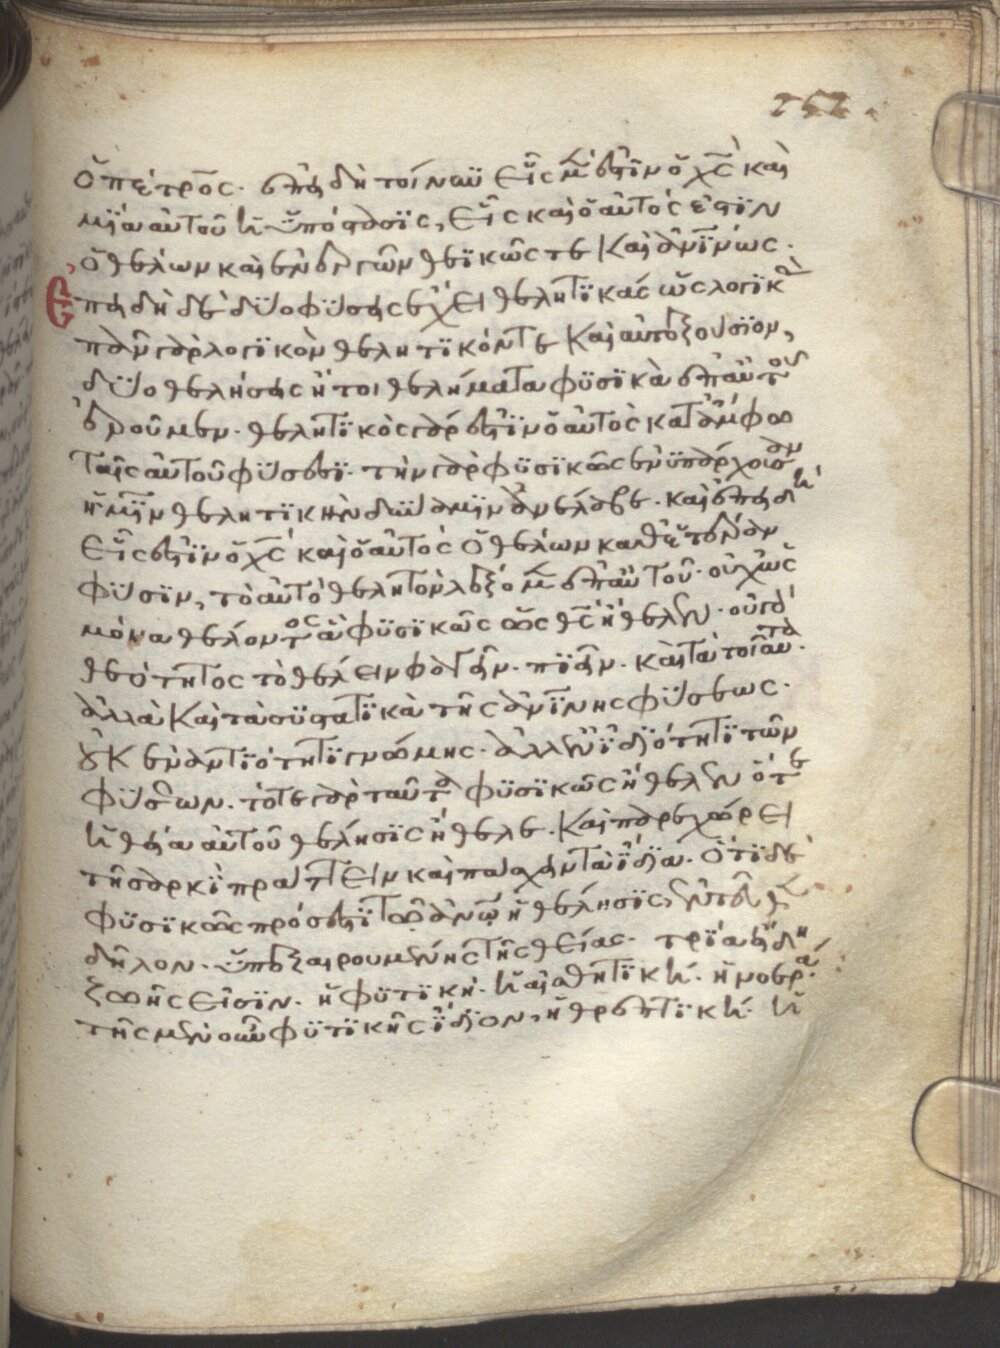 ὁ πέτρος· ἐπειδὴ τοίνυν εἷς μὲν ἐστὶν ὁ χς καὶ
μία αὐτοῦ ἡ ὑπόστασις, εἷς καὶ ὁ αὐτὸς ἐστὶν
ὁ θέλων καὶ ἐνεργῶν θεϊκῶς τε καὶ ἀνίνως·
Ἐπειδὴ δὲ δύο φύσεις ἔχει θελητικάς ὡς λογικὰς
πᾶν γὰρ λογικὸν θελητικόν τε καὶ αὐτεξούσιον,
δύο θελήσεις ἤτοι θελήματα φυσικὰ ἐπ' αὐτοῦ
ἐροῦμεν· θελητικὸς γάρ ἐστιν ὁ αὐτὸς κατ' ἄμφω
ταῖς αὐτοῦ φύσεσι· τὴν γὰρ φυσικῶς ἐνυπάρχουσαν
ἡμῖν θελητικὴν δύναμιν ἀνέλαβε· καὶ ἐπειδὴ
εἷς ἐστὶν ὁ χς καὶ ὁ αὐτὸς ὁ θέλων καθ' ἑκατέραν
φύσιν, τὸ αὐτὸ θελητὸν λέξομεν ἐπ' αὐτοῦ· οὐχ ὡς
μόνα θέλοντος ἃ φυσικῶς ὡς θς ἤθελεν· οὐ γὰρ
θεότητος τὸ θέλειν φαγεῖν· πιεῖν· καὶ τὰ τοιαῦτα·
ἀλλὰ καὶ τὰ συστατικὰ τῆς ἀνίνης φύσεως·
οὐκ ἐναντιότητι γνώμης· ἀλλ' ἐν ἰδιότητι τῶν
φύσεων· τότε γὰρ ταῦτα φυσικῶς ἤθελεν ὅτε
ἡ θεία αὐτοῦ θέλησις ἤθελε· καὶ παρεχώρει
τῇ σαρκὶ πράττειν καὶ πάσχειν τὰ ἴδια· ὅτι δὲ
φυσικῶς πρόσεστι τῷ ἀνῳ ἡ θέλησις, ἐντεῦθεν
δῆλον· ὑπεξαιρουμένης τῆς θείας· τρία εἴδη
ζωῆς εἰσὶν· ἡ φυτική· ἡ αἰσθητική· ἡ νοερά·
τῆς μὲν οὖν φυτικῆς ἴδιον, ἡ θρεπτική· ἡ